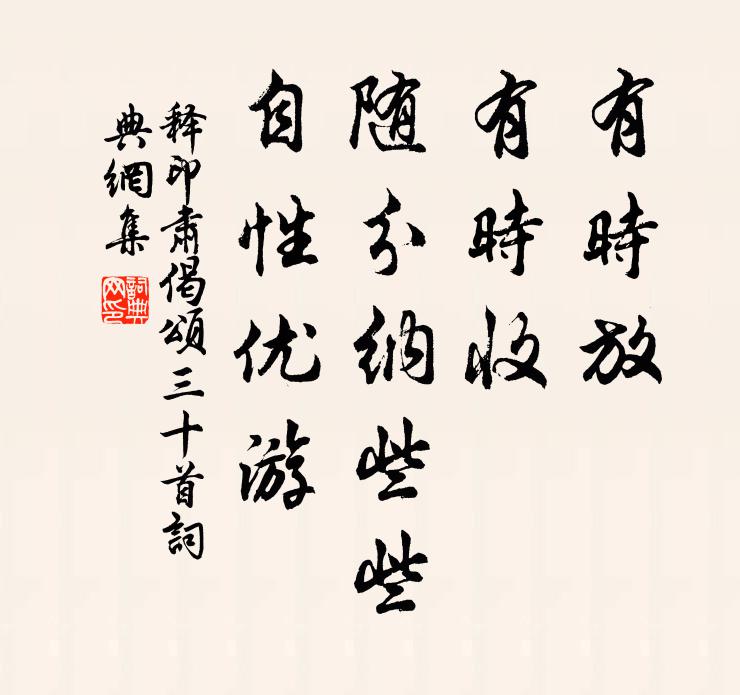 有時放
有時收
随分纳些些
自性优游
释印肃偈頌三十首詞
典網集
詞典
网印